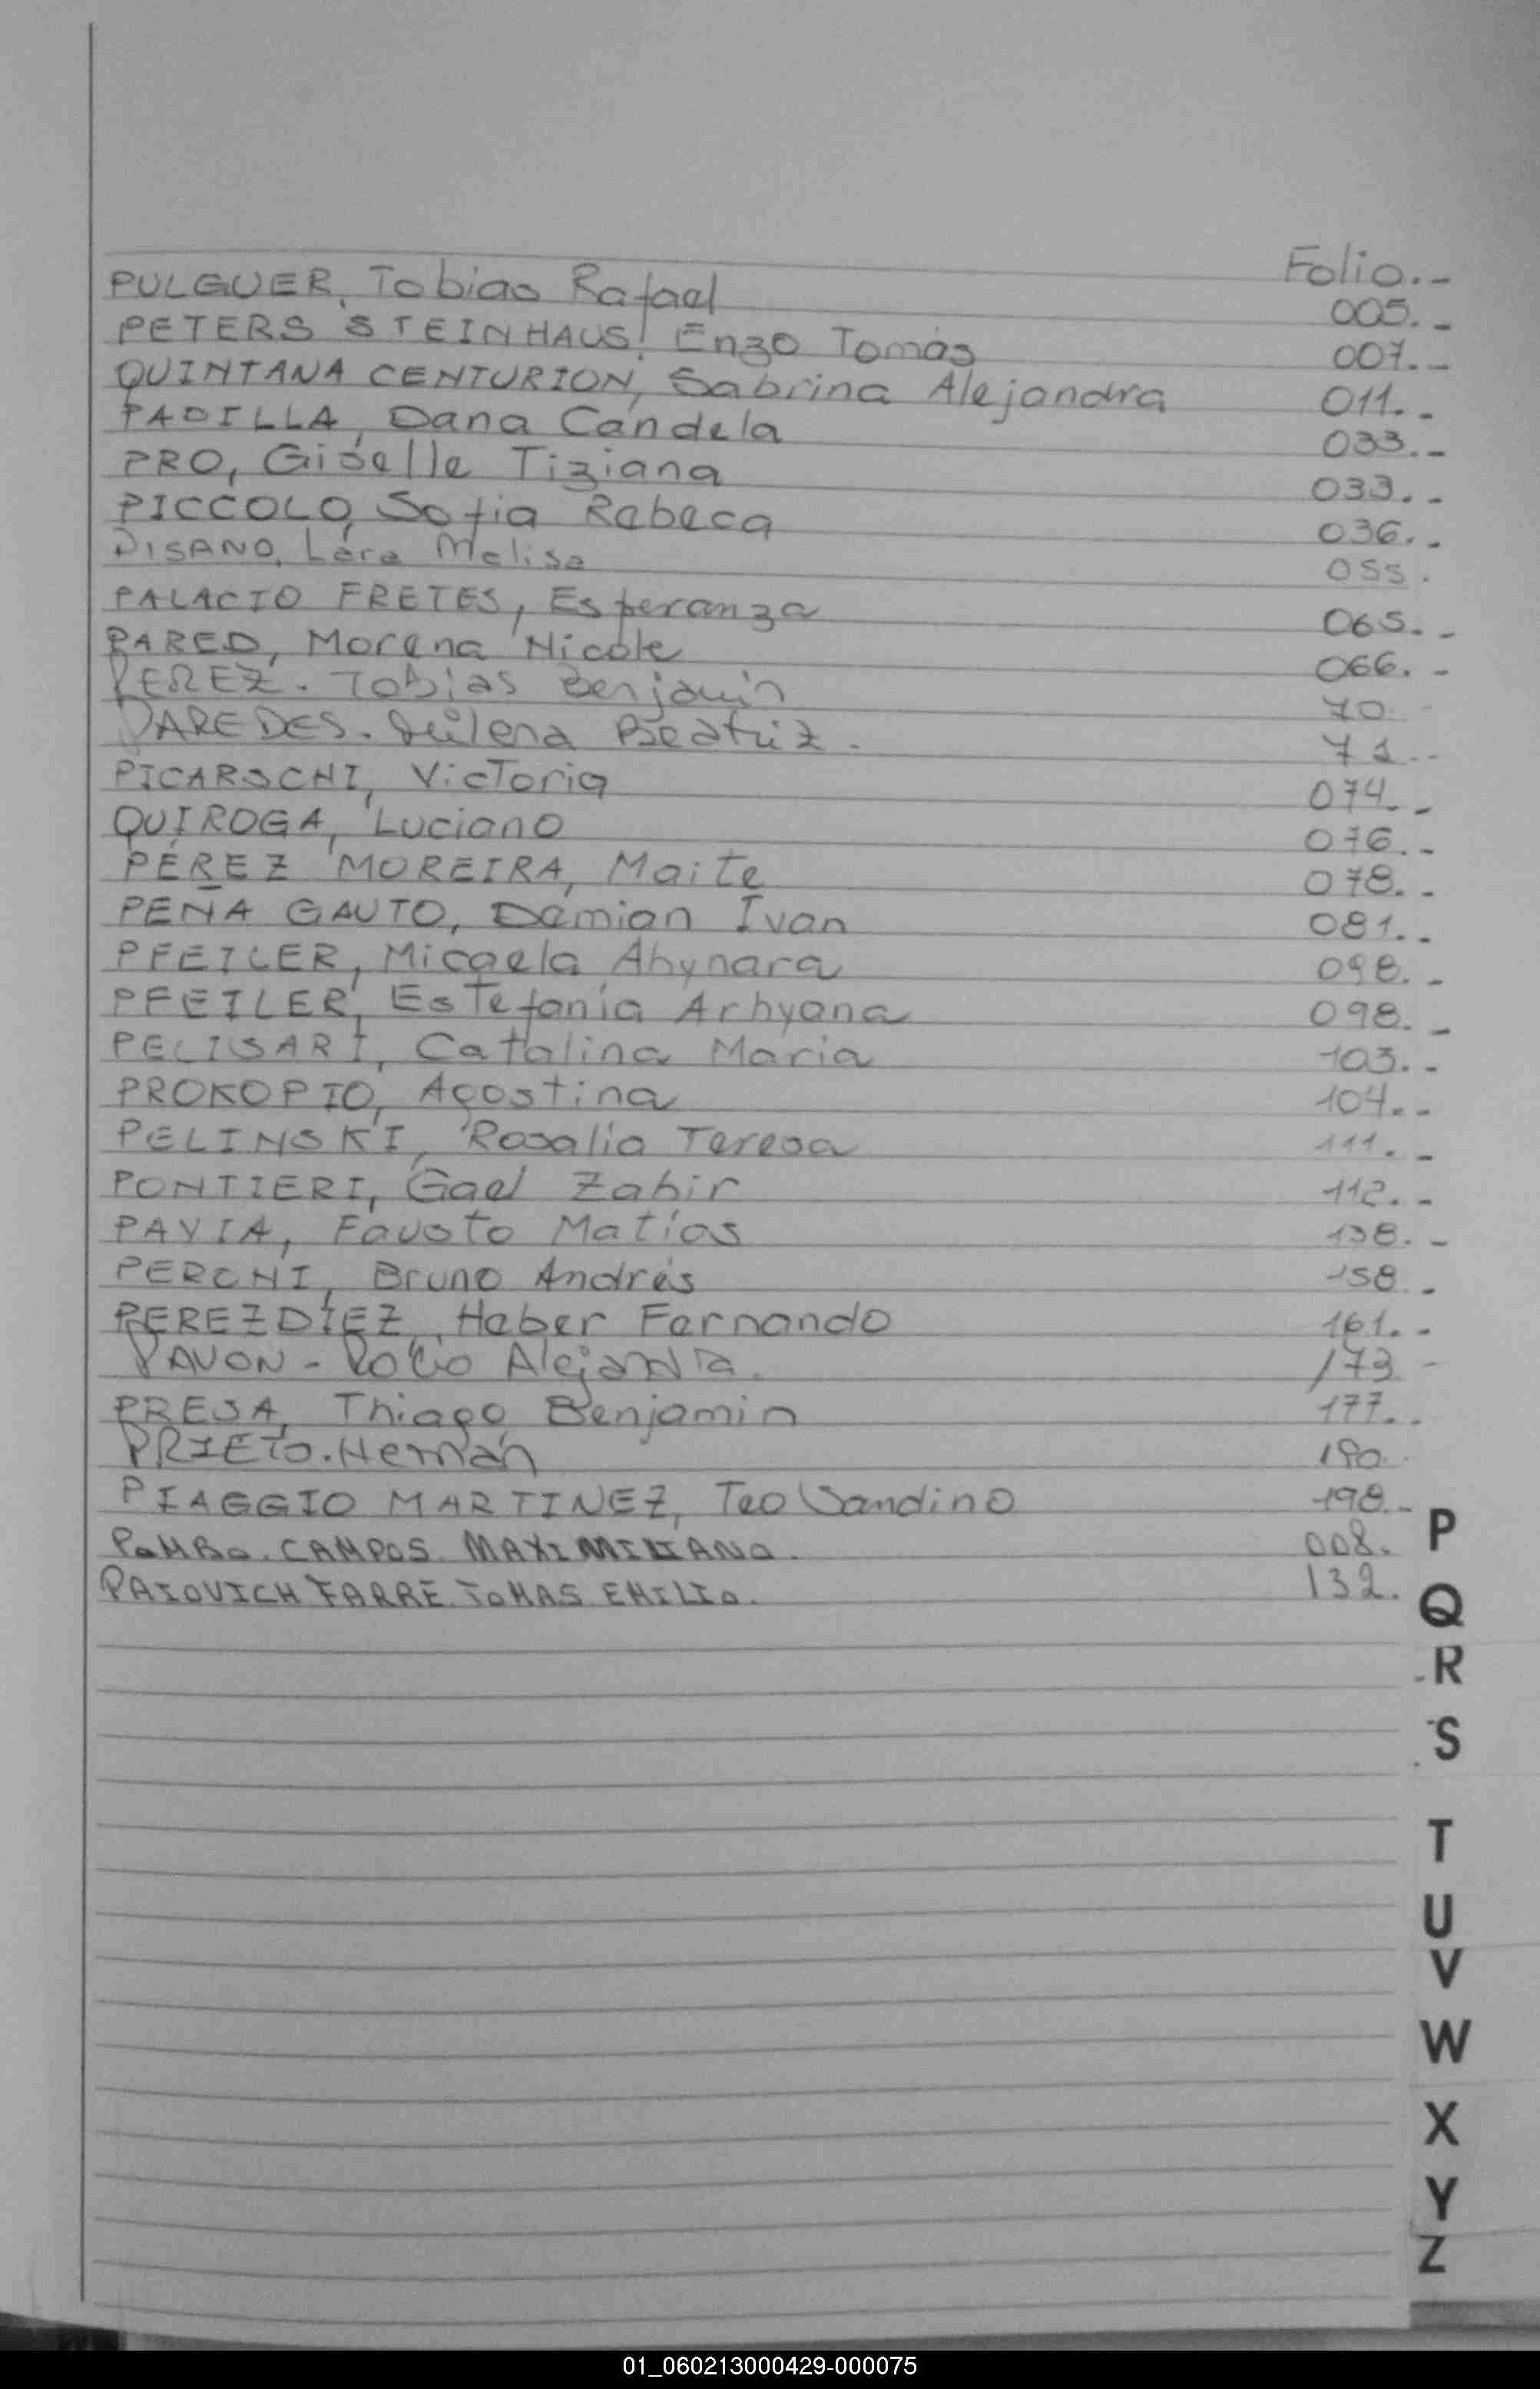 Folio._
PULGUER, Tobias Rafael 005._
PETERS STEINHAUS, Enzo Tomás 007._
QUINTANA CENTURION, Sabrina Alejandra 011._
PADILLA, Dana Candela 033._
PRO, Giselle Tiziana 033._
PICCOLO, Sofia Rebeca 036._
PISANO, Lara Melisa 055.
PALACIO FRETES, Esperanza 065._
PARED, Morena Nicole 066._
PEREZ. Tobias Benjamin 70
PAREDES. Milena Beatriz. 71._
PICARSCHI, Victoria 074._
QUIROGA, Luciano 076._
PÉREZ MOREIRA, Maite 078._
PEÑA GAUTO, Damian Ivan 081._
PFEILER, Micaela Ahynara 098._
PFEILER, Estefanía Arhyana 098._
PELISARI, Catalina Maria 103._
PROKOPIO, Agostina 104._
PELINSKI, Rosalia Teresa 111._
PONTIERI, Gael Zahir 112._
PAVIA, Fausto Matías 138._
PERCHI, Bruno Andrés 158._
PEREZ DÍEZ, Heber Fernando 161._
PAVON - Rocío Alejandra. 173 -
PRESA, Thiago Benjamin 177._
PRIETO. Hernán 190.
PIAGGIO MARTINEZ, Teo Sandino 198._
POMBO. CAMPOS MAXIMILIANO. 008.
PAIOVICH FARRE TOMAS EMILIO. 132.
P
Q
R
S
T
U
V
W
X
Y
Z
01_060213000429-000075